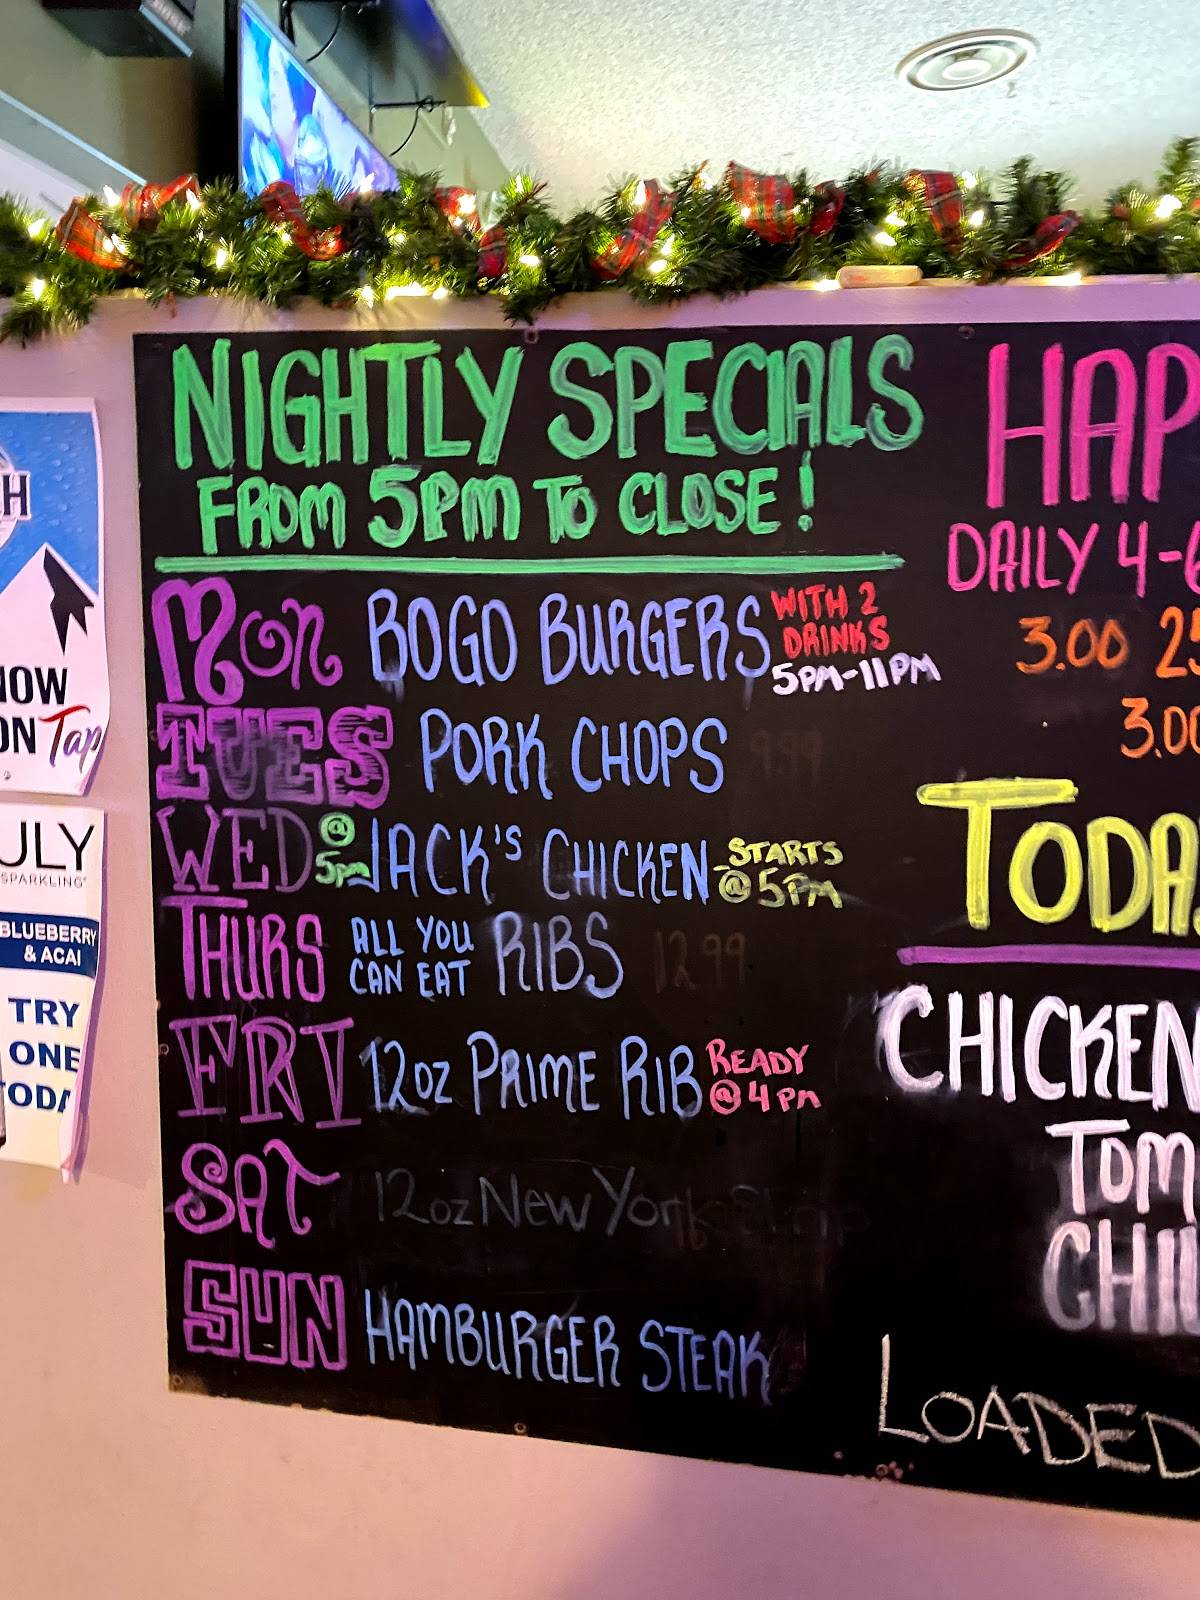 NIGHTLY SPECIALS
FROM 5PM TO CLOSE!
MON BOGO BURGERS WITH 2 DRINKS 5PM-11PM
TUES PORK CHOPS 9.99
WED @ 5pm JACK'S CHICKEN STARTS @ 5PM
THURS ALL YOU CAN EAT RIBS 12.99
FRI 12oz PRIME RIB READY @ 4 PM
SAT 12oz New York Strip
SUN HAMBURGER STEAK
HAP
DAILY 4-6
3.00 25
3.00
TODA
CHICKEN
TOM
CHIL
LOADED
H
NOW
ON Tap
ULY
SPARKLING
BLUEBERRY
& ACAI
TRY
ONE
TODA